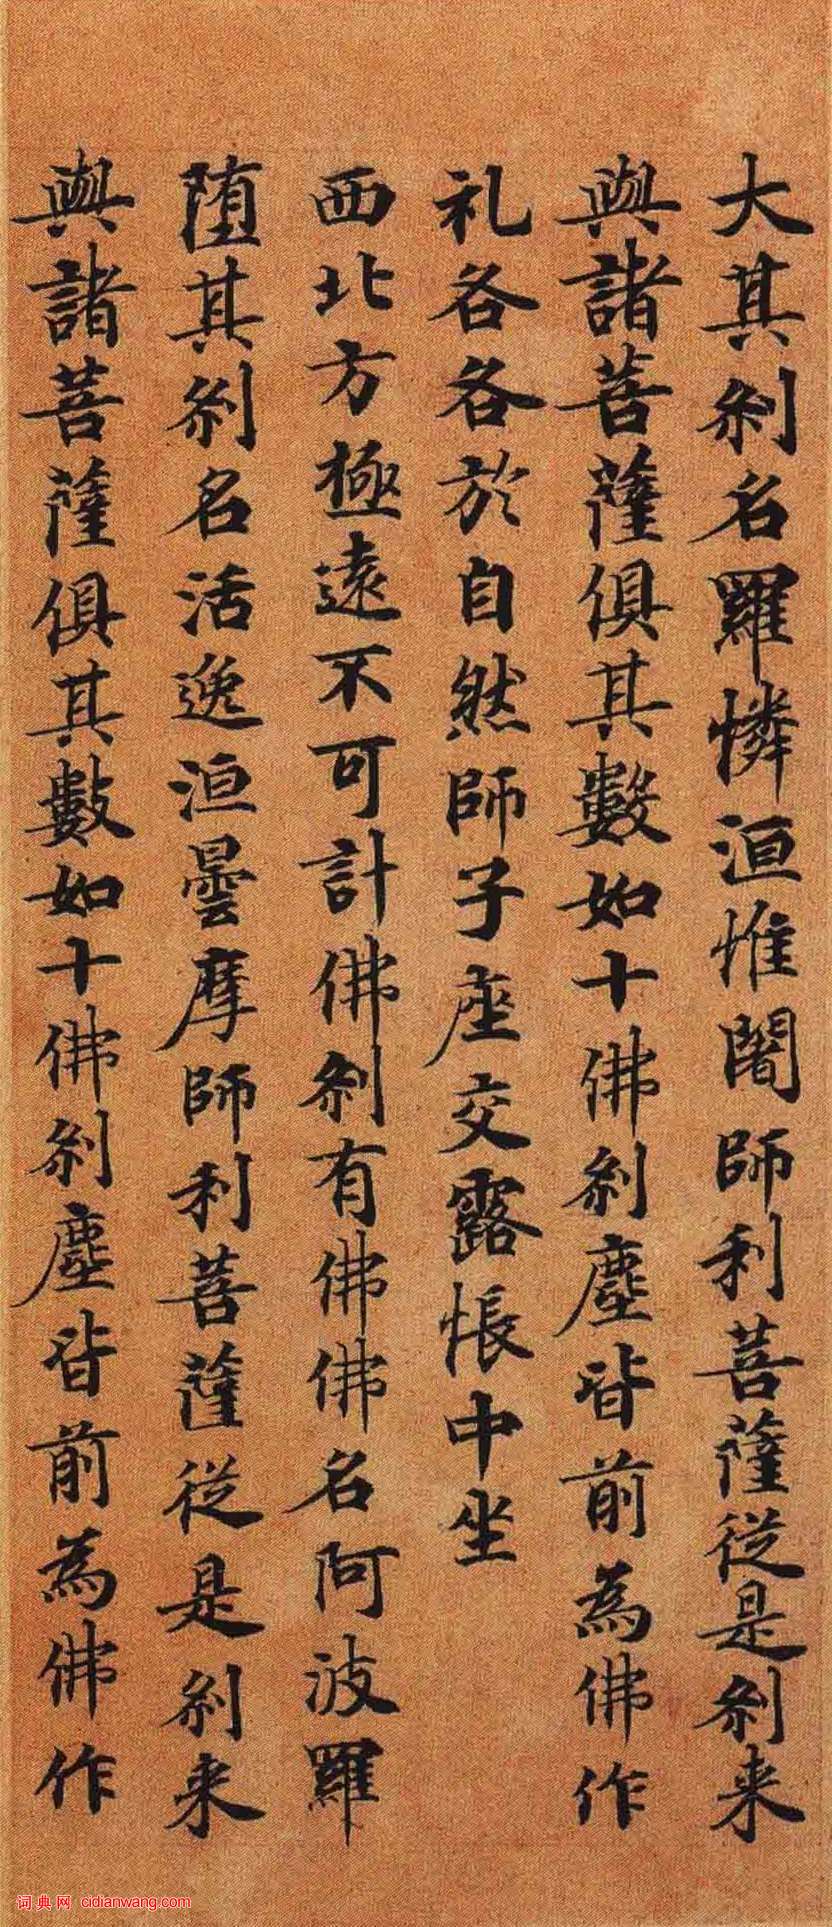 大其刹名羅憐洹惟闍師利菩薩從是刹来
與諸菩薩俱其數如十佛刹塵皆前為佛作
礼各各於自然師子座交露帳中坐
西北方極遠不可計佛刹有佛佛名阿波羅
堕其刹名活逸洹曇摩師利菩薩從是刹来
與諸菩薩俱其數如十佛刹塵皆前為佛作
词典网 cidianwang.com